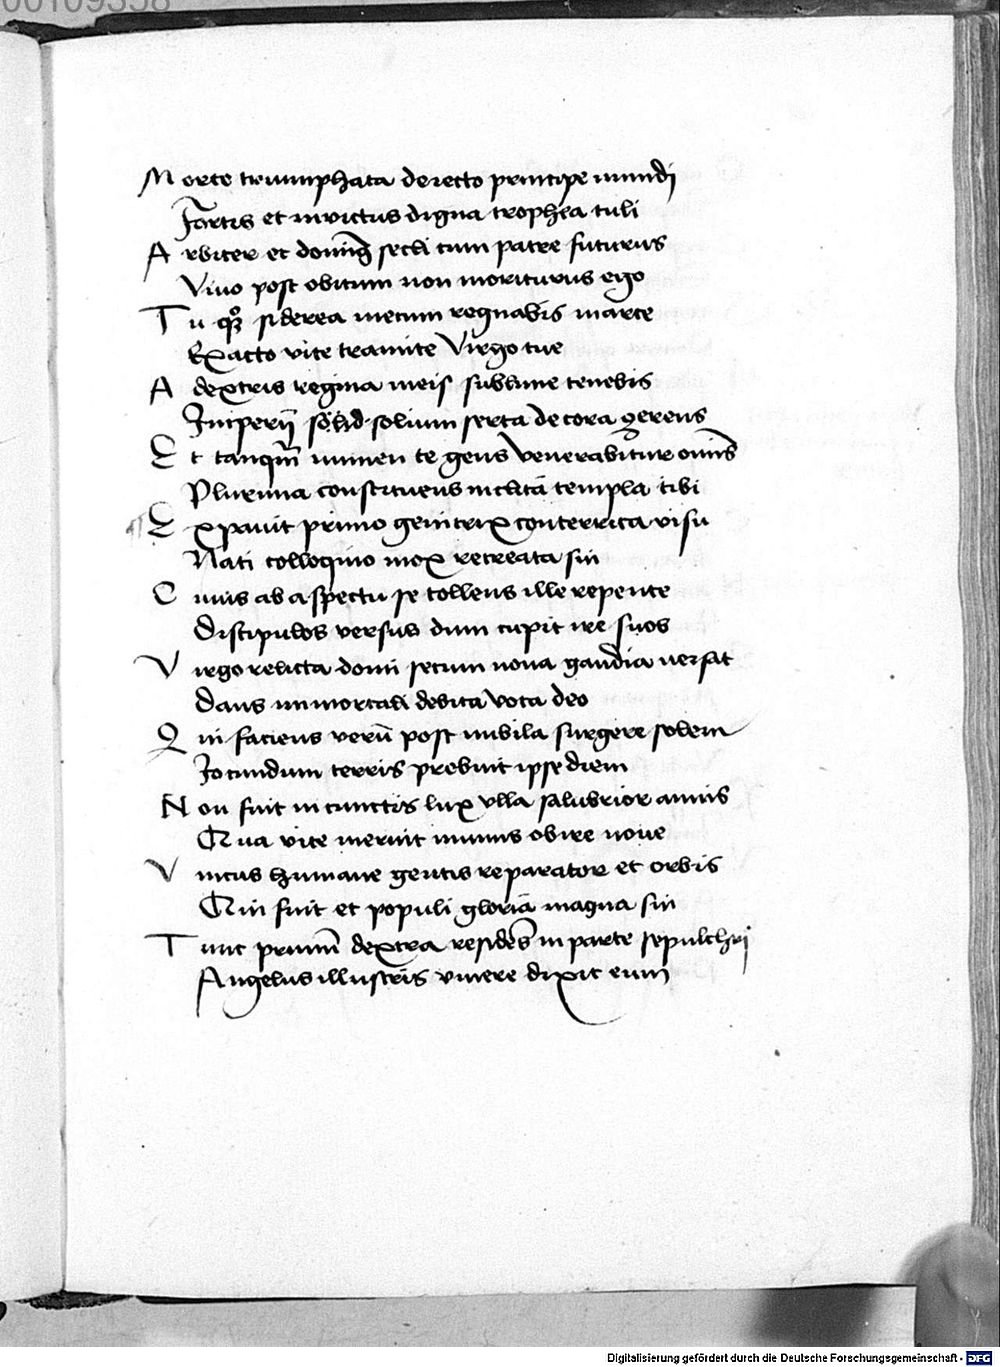 00109338
Morte triumphata deiecto principe mundi
Fortis et invictus digna trophea tuli
Arbiter et domin9 secli cum patre futurus
Vivo post obitum non moriturus ego
Tu q3 siderea mecum regnabis in arce
Exacto vite tramite Virgo tue
A dextris regina meis sublime tenebis
Imperij solium serta decora gerens
Et tanqm̄ numen te gens venerabitur omīs
Plurima constituens inclita templa tibi
Expavit primo genitrix conterrita visu
Nati colloquio mox recreata sui
Cuius ab aspectu se tollens ille repente
Discipulos versus dum cupit ire suos
Virgo relicta domi secum nova gaudia versat
Dans immortali debita vota deo
Qui faciens verū post nubila surgere solem
Jocundum terris prebuit ipse diem
Non fuit in cunctis lux vlla salubrior annis
Qua vite meruit munus obire nove
Vnicus humane gentis reparator et orbis
Qui fuit et populi gloria magna sui
Tunc primū dextra residēs in parte sepulchri
Angelus illustris vivere dixit eum
Digitalisierung gefördert durch die Deutsche Forschungsgemeinschaft - DFG